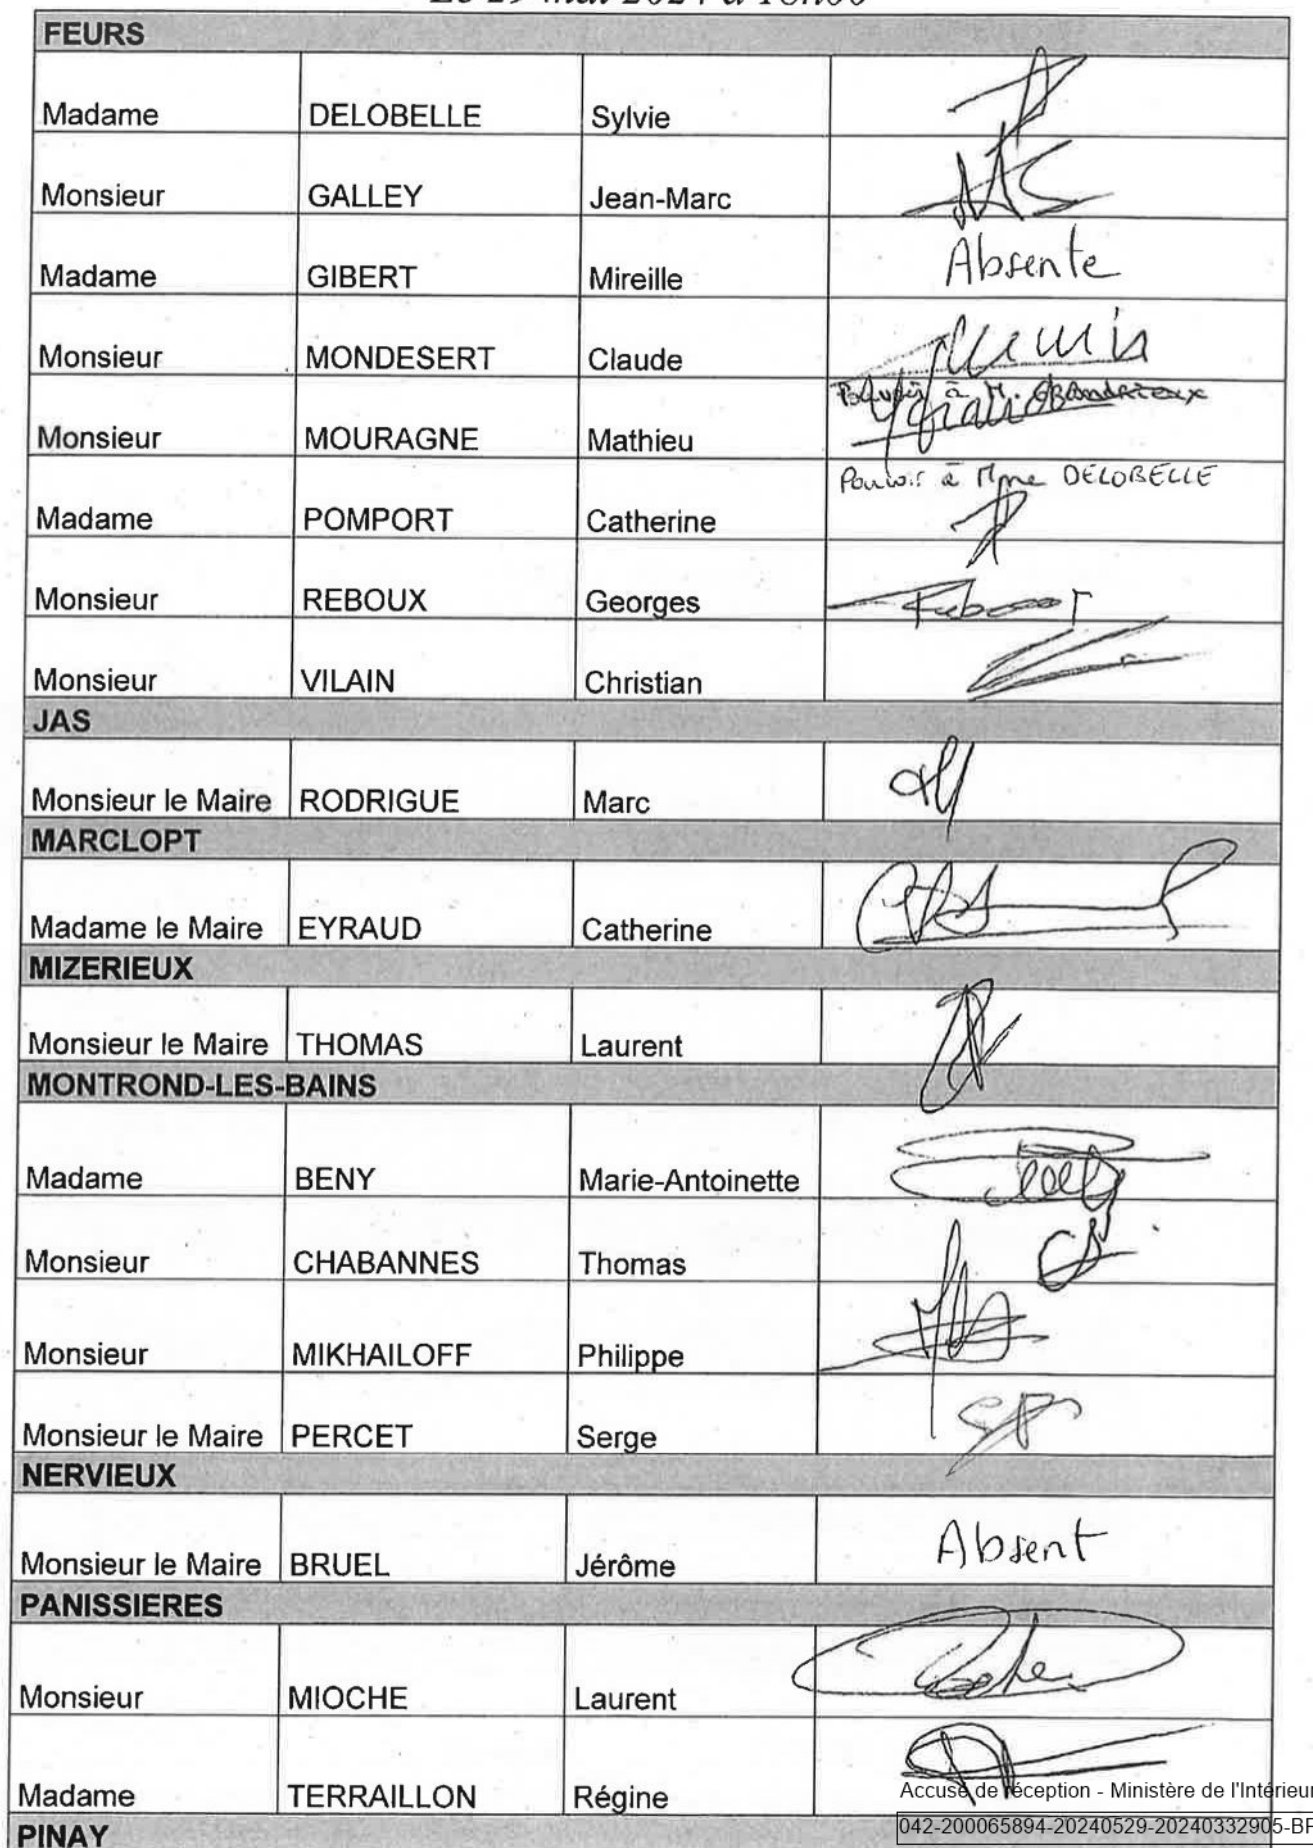 Le 29 mai 2024 à 18h00
FEURS
Madame DELOBELLE Sylvie
Monsieur GALLEY Jean-Marc
Madame GIBERT Mireille Absente
Monsieur MONDESERT Claude
Pouvoir à M. GRANDRIEUX
Monsieur MOURAGNE Mathieu
Pouvoir à Mme DELOBELLE
Madame POMPORT Catherine
Monsieur REBOUX Georges
Monsieur VILAIN Christian
JAS
Monsieur le Maire RODRIGUE Marc
MARCLOPT
Madame le Maire EYRAUD Catherine
MIZERIEUX
Monsieur le Maire THOMAS Laurent
MONTROND-LES-BAINS
Madame BENY Marie-Antoinette
Monsieur CHABANNES Thomas
Monsieur MIKHAILOFF Philippe
Monsieur le Maire PERCET Serge
NERVIEUX
Monsieur le Maire BRUEL Jérôme Absent
PANISSIERES
Monsieur MIOCHE Laurent
Madame TERRAILLON Régine
Accusé de réception - Ministère de l'Intérieur
PINAY
042-200065894-20240529-20240332905-BF